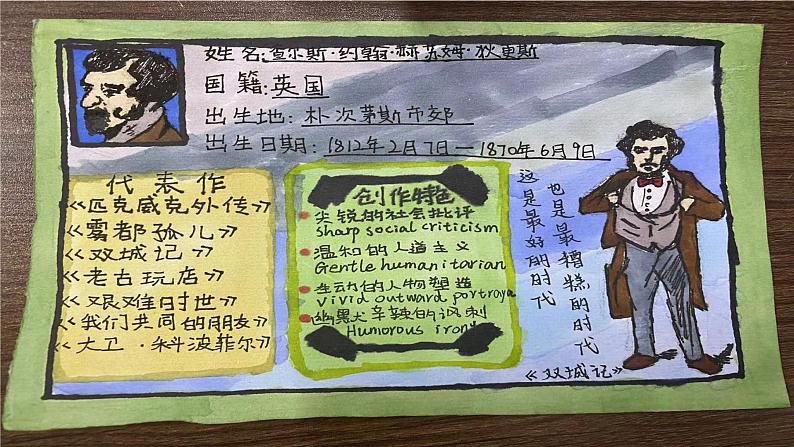 姓名:查尔斯·约翰·赫芬姆·狄更斯
国籍:英国
出生地:朴次茅斯市郊
出生日期:1812年2月7日—1870年6月9日
代表作
《匹克威克外传》
《雾都孤儿》
《双城记》
《老古玩店》
《艰难时世》
《我们共同的朋友》
《大卫·科波菲尔》
创作特色
尖锐的社会批评
sharp social criticism
温和的人道主义
Gentle humanitarian
生动的人物塑造
vivid outward portraya
幽默辛辣的讽刺
Humorous irony
这是最好的时代
也是最糟糕的时代
《双城记》